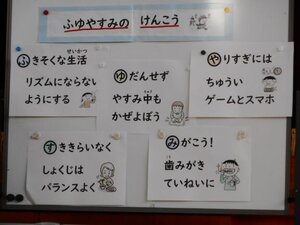 ふゆやすみの けんこう
ふきそくな生活
せいかつ
リズムにならない
ようにする
ゆだんせず
やすみ中も
ちゅう
かぜよぼう
やりすぎには
ちゅうい
ゲームとスマホ
すききらいなく
しょくじは
バランスよく
みがこう!
歯みがき
は
ていねいに